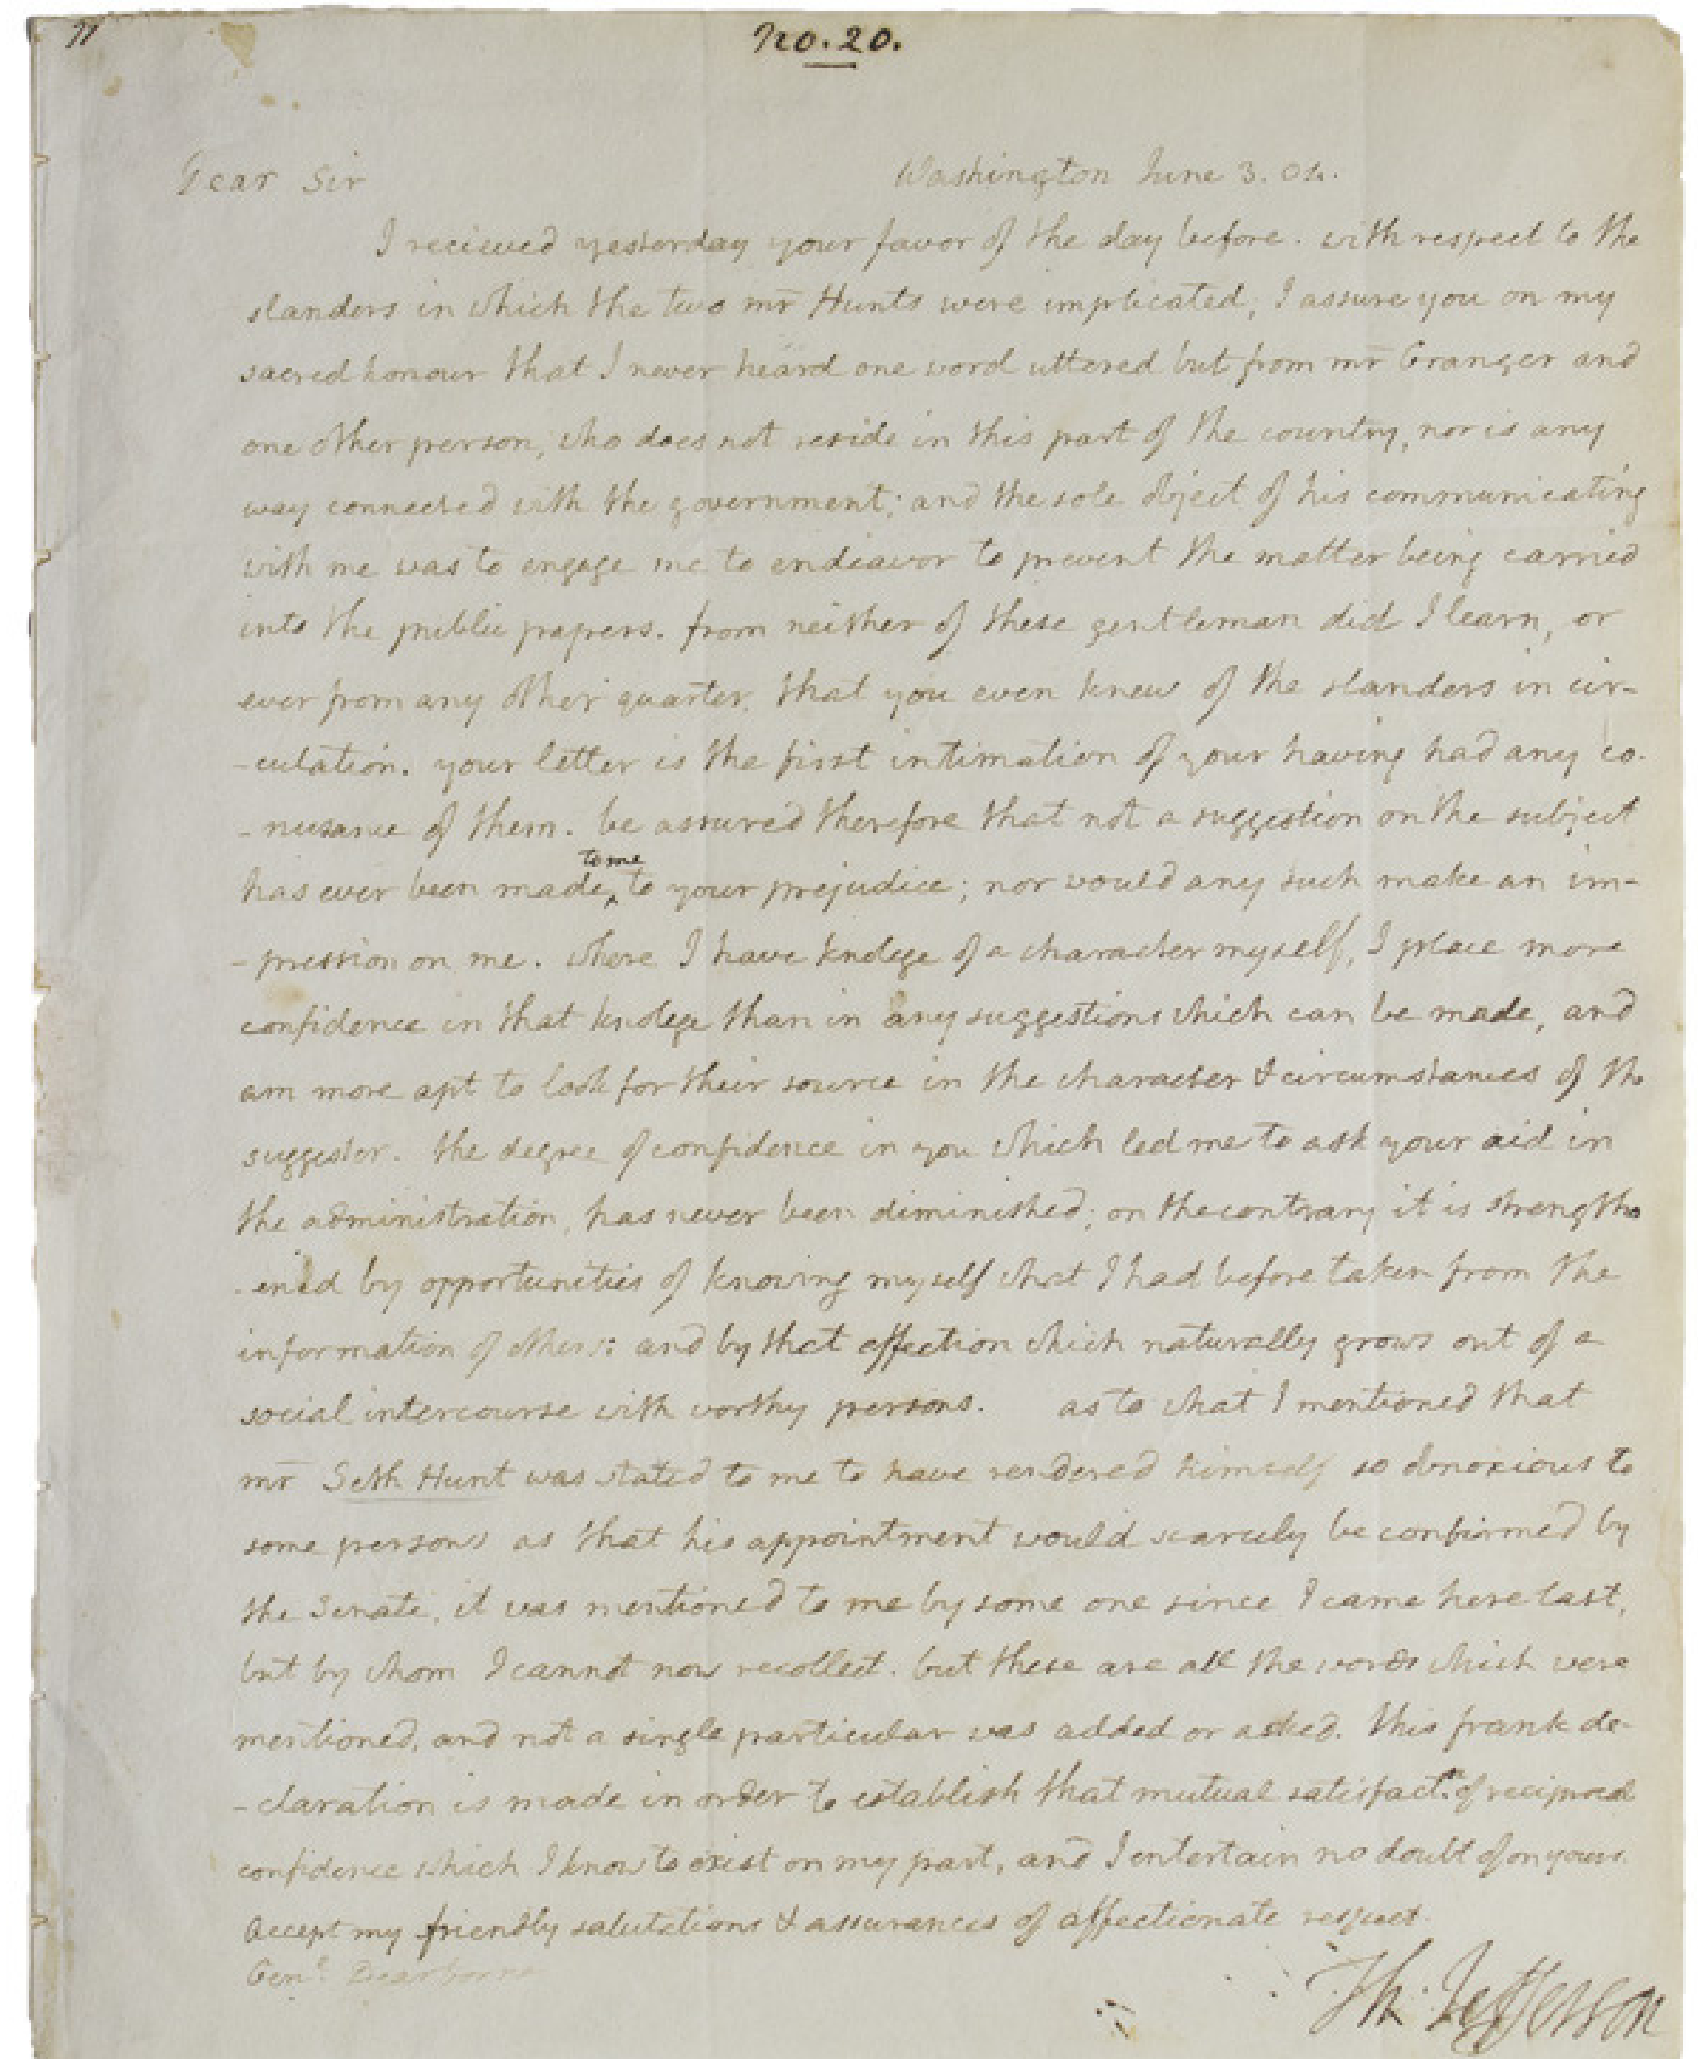 No. 20.
Dear Sir Washington June 3. 04.
I recieved yesterday your favor of the day before. with respect to the
slanders in which the two mr Hunts were implicated, I assure you on my
sacred honour that I never heard one word uttered but from mr Granger and
one other person, who does not reside in this part of the country, nor is any
way connected with the government; and the sole object of his communicating
with me was to engage me to endeavor to prevent the matter being carried
into the public papers. from neither of these gentleman did I learn, or
ever from any other quarter, that you even knew of the slanders in cir-
-culation. your letter is the first intimation of your having had any co-
-nusance of them. be assured therefore that not a suggestion on the subject
has ever been made, to me to your prejudice; nor would any such make an im-
-pression on me. where I have knolege of a character myself, I place more
confidence in that knolege than in any suggestions which can be made, and
am more apt to look for their source in the character & circumstances of the
suggester. the degree of confidence in you which led me to ask your aid in
the administration, has never been diminished; on the contrary it is strength
-ened by opportunities of knowing myself what I had before taken from the
information of others: and by that affection which naturally grows out of a
social intercourse with worthy persons. as to what I mentioned that
mr Seth Hunt was stated to me to have rendered himself so obnoxious to
some persons as that his appointment would scarcely be confirmed by
the Senate, it was mentioned to me by some one since I came here last,
but by whom I cannot now recollect. but these are all the words which were
mentioned, and not a single particular was added or asked. this frank de-
-claration is made in order to establish that mutual satisfactn. of reciprocal
confidence which I know to exist on my part, and I entertain no doubt of on yours.
Accept my friendly salutations & assurances of affectionate respect.
Genl. Dearborne
Th: Jefferson